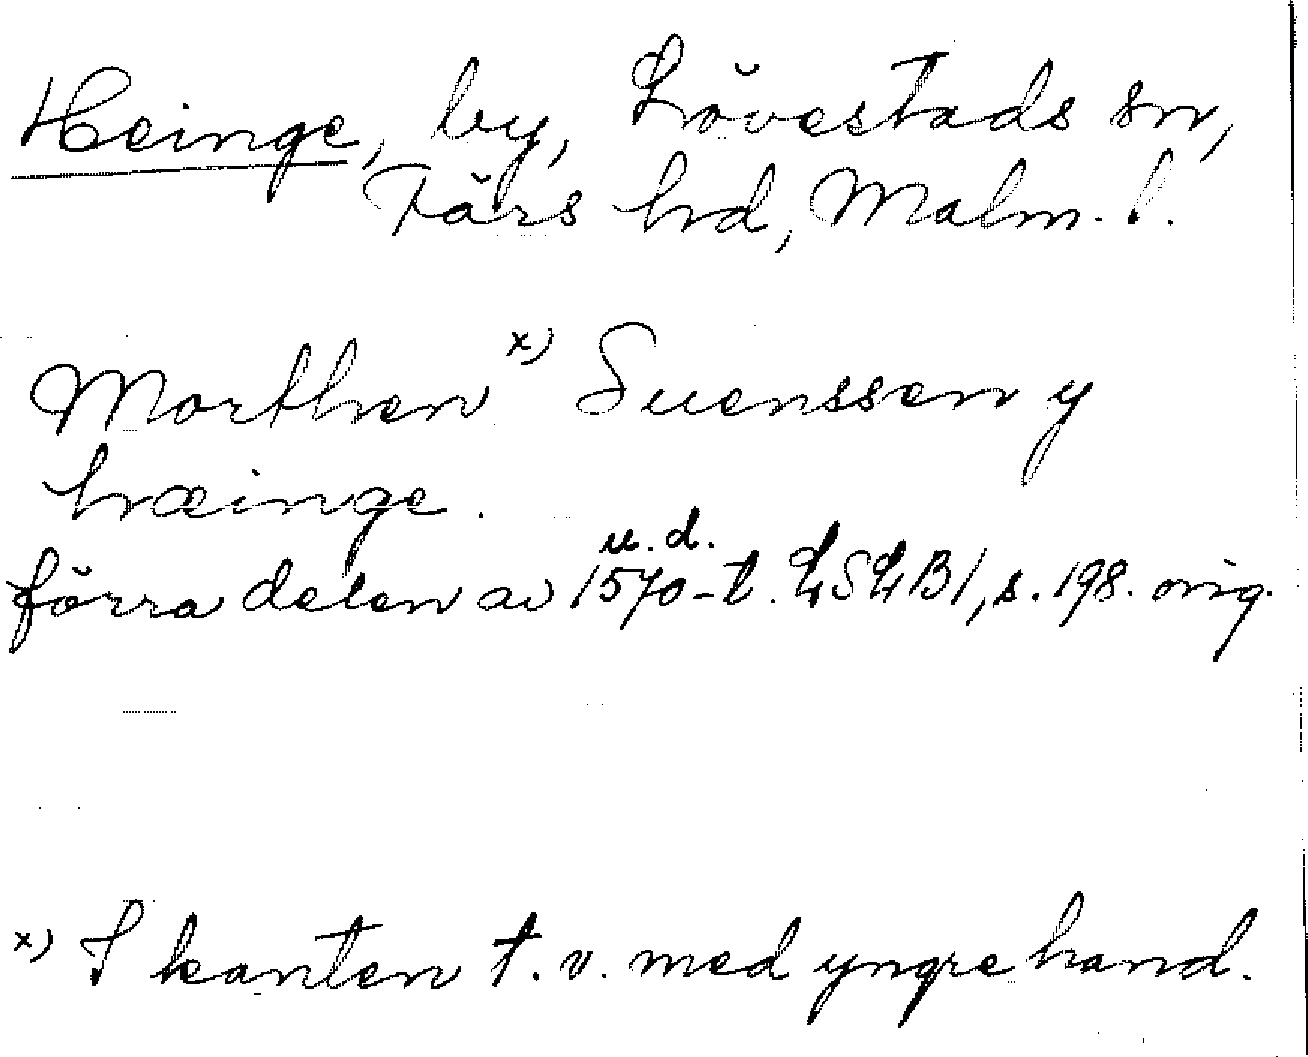 Heinge, by, Lövestads sn,
Färs hd, Malm. l.
Morthen x) Suenssen y
hæinge.
u. d.
förra delen av 1570-t. LSLB1, s. 198. orig.
x) I kanten t. v. med yngre hand.